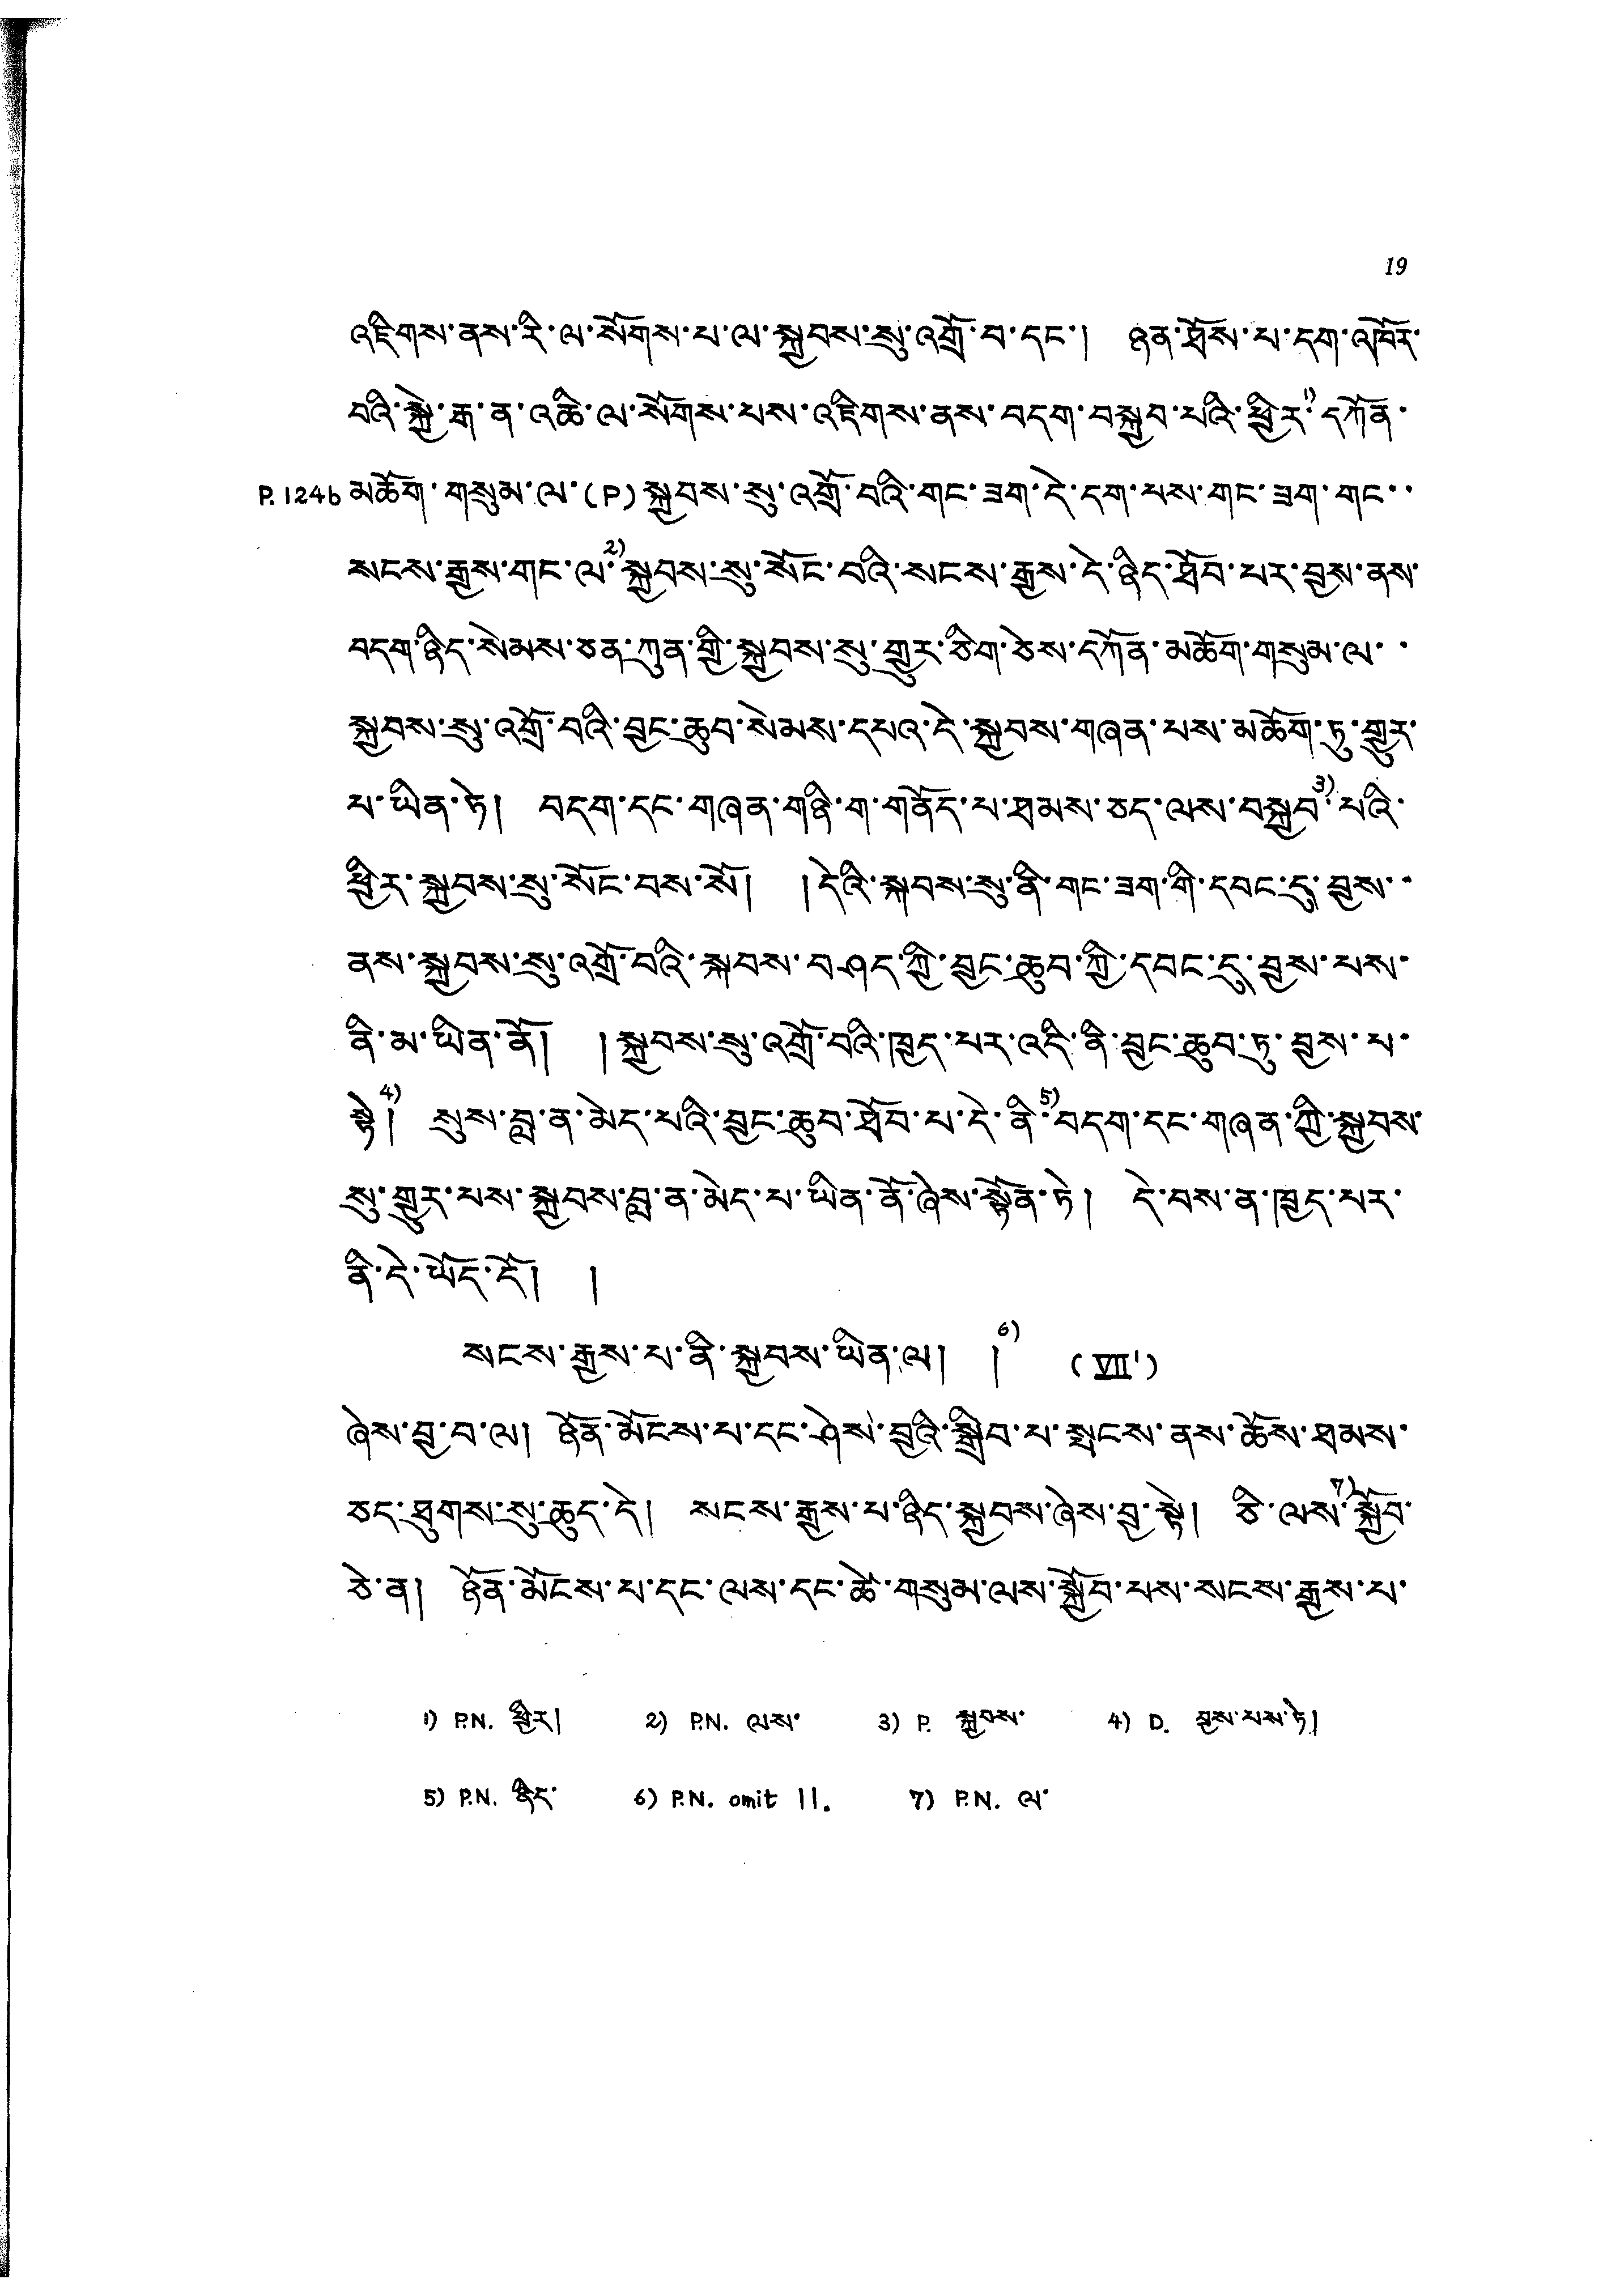 19
འཇིགས་ནས་རི་ལ་སོགས་པ་ལ་སྐྱབས་སུ་འགྲོ་བ་དང་། ཉན་ཐོས་པ་དག་འཁོར་
བའི་སྐྱེ་རྒ་ན་འཆི་ལ་སོགས་པས་འཇིགས་ནས་བདག་བསྐྱབ་པའི་ཕྱིར་1)དཀོན་
P.124b མཆོག་གསུམ་ལ་(P)སྐྱབས་སུ་འགྲོ་བའི་གང་ཟག་དེ་དག་པས་གང་ཟག་གང་་
སངས་རྒྱས་གང་ལ་2)སྐྱབས་སུ་སོང་བའི་སངས་རྒྱས་དེ་ཉིད་ཐོབ་པར་བྱས་ནས་
བདག་ཉིད་སེམས་ཅན་ཀུན་གྱི་སྐྱབས་སུ་གྱུར་ཅིག་ཅེས་དཀོན་མཆོག་གསུམ་ལ་་
སྐྱབས་སུ་འགྲོ་བའི་བྱང་ཆུབ་སེམས་དཔའ་དེ་སྐྱབས་གཞན་པས་མཆོག་ཏུ་གྱུར་
པ་ཡིན་ཏེ། བདག་དང་གཞན་གཉི་ག་གནོད་པ་ཐམས་ཅད་ལས་བསྐྱབ་3)པའི་
ཕྱིར་སྐྱབས་སུ་སོང་བས་སོ། །དེའི་སྐབས་སུ་ནི་གང་ཟག་གི་དབང་དུ་བྱས་་
ནས་སྐྱབས་སུ་འགྲོ་བའི་སྐབས་བཤད་ཀྱི་བྱང་ཆུབ་ཀྱི་དབང་དུ་བྱས་པས་
ནི་མ་ཡིན་ནོ། །སྐྱབས་སུ་འགྲོ་བའི་ཁྱད་པར་འདི་ནི་བྱང་ཆུབ་ཏུ་བྱས་པ་
སྟེ།4) སུས་བླ་ན་མེད་པའི་བྱང་ཆུབ་ཐོབ་པ་དེ་ནི་5)བདག་དང་གཞན་ཀྱི་སྐྱབས་
སུ་གྱུར་པས་སྐྱབས་བླ་ན་མེད་པ་ཡིན་ནོ་ཞེས་སྟོན་ཏེ། དེ་བས་ན་ཁྱད་པར་
ནི་དེ་ཡོད་དོ། །
སངས་རྒྱས་པ་ནི་སྐྱབས་ཡིན་ལ། །6) (VII')
ཞེས་བྱ་བ་ལ། ཉོན་མོངས་པ་དང་ཤེས་བྱའི་སྒྲིབ་པ་སྤངས་ནས་ཆོས་ཐམས་
ཅད་ཐུགས་སུ་ཆུད་དེ། སངས་རྒྱས་པ་ཉིད་སྐྱབས་ཞེས་བྱ་སྟེ། ཅི་ལས་7)སྐྱོབ་
ཅེ་ན། ཉོན་མོངས་པ་དང་ལས་དང་ཚེ་གསུམ་ལས་སྐྱོབ་པས་སངས་རྒྱས་པ་
1) P.N. ཕྱིར། 2) P.N. ལས་ 3) P. སྐྱབས་ 4) D. བྱས་པས་ཏེ།
5) P.N. ཉིད་ 6) P.N. omit ||. 7) P.N. ལ་